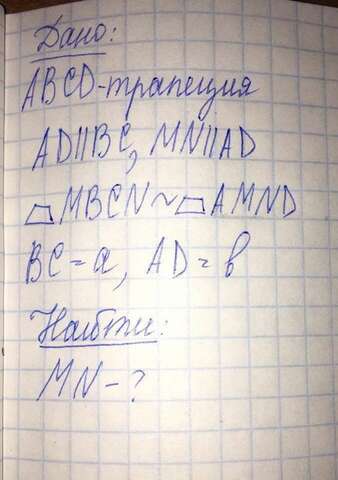 Дано:
ABCD-трапеция
AD||BC, MN||AD
MBCN~AMND
BC=a, AD=b
Найти:
MN-?